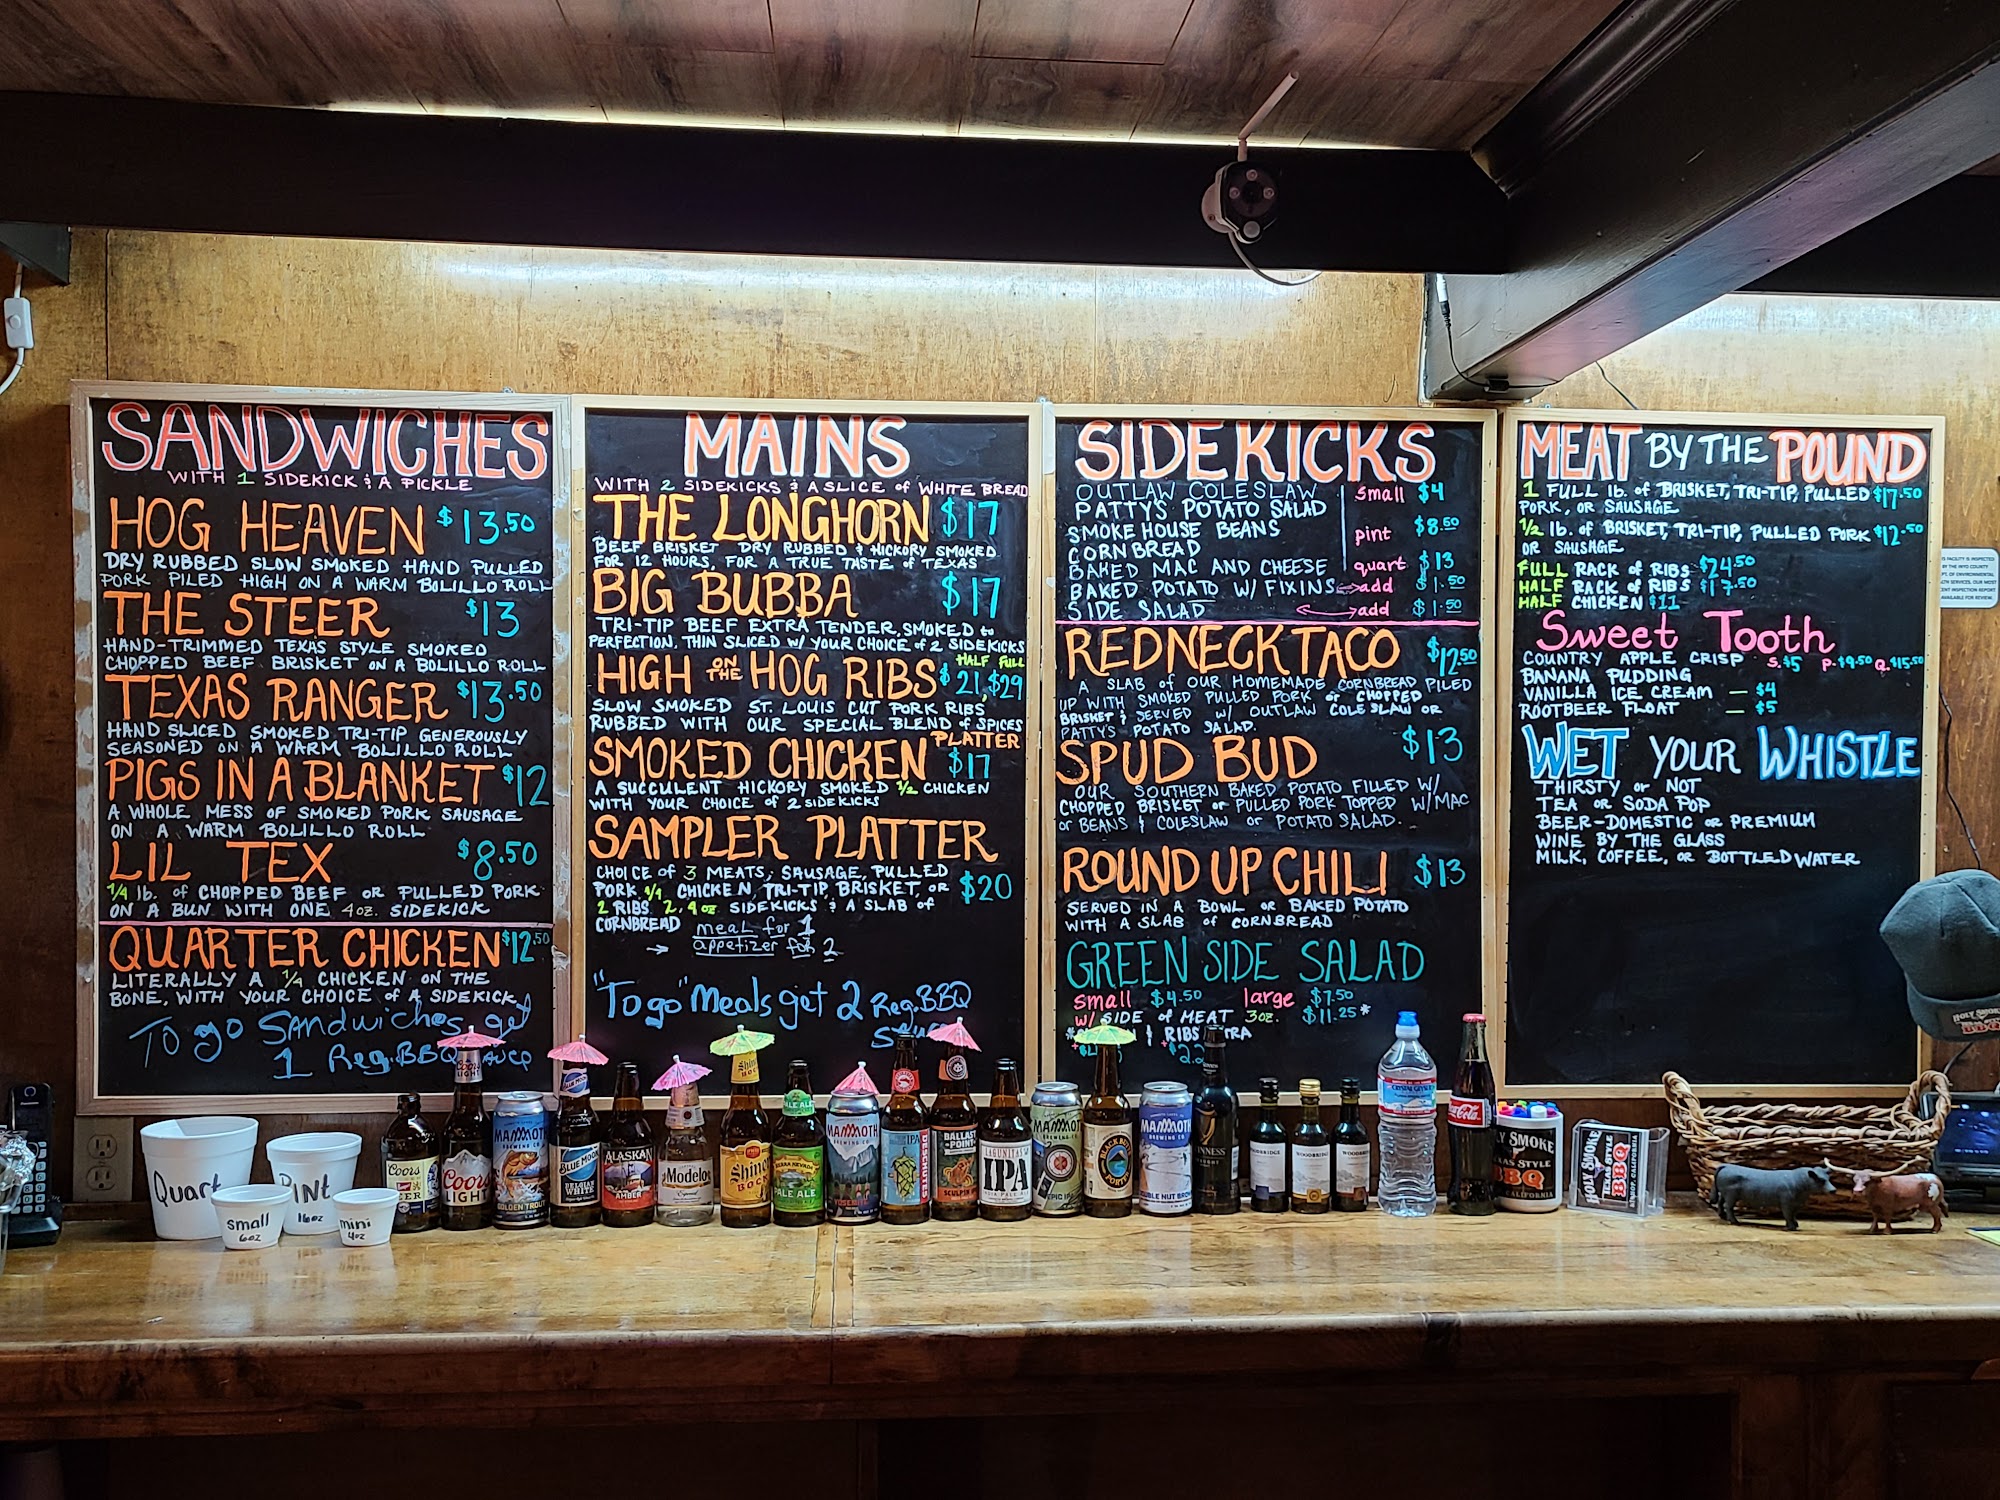 SANDWICHES
WITH 1 SIDEKICK & A PICKLE
HOG HEAVEN $13.50
DRY RUBBED SLOW SMOKED HAND PULLED
PORK PILED HIGH ON A WARM BOLILLO ROLL
THE STEER $13
HAND-TRIMMED TEXAS STYLE SMOKED
CHOPPED BEEF BRISKET ON A BOLILLO ROLL
TEXAS RANGER $13.50
HAND SLICED SMOKED TRI-TIP GENEROUSLY
SEASONED ON A WARM BOLILLO ROLL
PIGS IN A BLANKET $12
A WHOLE MESS OF SMOKED PORK SAUSAGE
ON A WARM BOLILLO ROLL
LIL TEX $8.50
1/4 lb. of CHOPPED BEEF OR PULLED PORK
ON A BUN WITH ONE 4oz. SIDEKICK
QUARTER CHICKEN $12.50
LITERALLY A 1/4 CHICKEN ON THE
BONE, WITH YOUR CHOICE of A SIDEKICK
To go SANdwiches get
1 Reg. BBQ sauce
MAINS
WITH 2 SIDEKICKS & A SLICE of WHITE BREAD
THE LONGHORN $17
BEEF BRISKET DRY RUBBED & HICKORY SMOKED
FOR 12 HOURS, FOR A TRUE TASTE of TEXAS
BIG BUBBA $17
TRI-TIP BEEF EXTRA TENDER, SMOKED to
PERFECTION, THIN SLICED W/ YOUR CHOICE of 2 SIDEKICKS
HALF FULL
HIGH ON THE HOG RIBS $21, $29
SLOW SMOKED ST. LOUIS CUT PORK RIBS
RUBBED WITH OUR SPECIAL BLEND of SPICES
SMOKED CHICKEN PLATTER $17
A SUCCULENT HICKORY SMOKED 1/2 CHICKEN
WITH YOUR CHOICE of 2 SIDEKICKS
SAMPLER PLATTER
CHOICE of 3 MEATS; SAUSAGE, PULLED
PORK 1/4 CHICKEN, TRI-TIP, BRISKET, OR $20
2 RIBS 2, 4oz SIDEKICKS & A SLAB of
CORNBREAD meal for 1
→ appetizer for 2
"To go" Meals get 2 Reg. BBQ
SIDEKICKS
OUTLAW COLESLAW small $4
PATTY'S POTATO SALAD
SMOKE HOUSE BEANS pint $8.50
CORNBREAD
BAKED MAC AND CHEESE quart $13
BAKED POTATO W/ FIXINS add $1.50
SIDE SALAD add $1.50
REDNECK TACO $12.50
A SLAB of OUR HOMEMADE CORNBREAD PILED
UP WITH SMOKED PULLED PORK or CHOPPED
BRISKET & SERVED W/ OUTLAW COLESLAW OR
PATTY'S POTATO SALAD.
SPUD BUD $13
OUR SOUTHERN BAKED POTATO FILLED W/
CHOPPED BRISKET or PULLED PORK TOPPED W/MAC
or BEANS & COLESLAW or POTATO SALAD.
ROUND UP CHILI $13
SERVED IN A BOWL or BAKED POTATO
WITH A SLAB of CORNBREAD
GREEN SIDE SALAD
small $4.50 large $7.50
w/ SIDE of MEAT 3oz. $11.25*
& RIBS
MEAT BY THE POUND
1 FULL lb. of BRISKET, TRI-TIP, PULLED $17.50
PORK, OR SAUSAGE
1/2 lb. of BRISKET, TRI-TIP, PULLED PORK $12.50
OR SAUSAGE
FULL RACK of RIBS $24.50
HALF RACK of RIBS $17.50
HALF CHICKEN $11
Sweet Tooth
COUNTRY APPLE CRISP S.$5 P.$9.50 Q.$15.50
BANANA PUDDING
VANILLA ICE CREAM — $4
ROOTBEER FLOAT — $5
WET YOUR WHISTLE
THIRSTY or NOT
TEA or SODA POP
BEER-DOMESTIC or PREMIUM
WINE BY THE GLASS
MILK, COFFEE, or BOTTLED WATER
Quart
PINT
16oz
small
6oz
mini
4oz
Coors
Coors LIGHT
MAMMOTH
BREWING CO.
GOLDEN TROUT
BLUE MOON
BELGIAN WHITE
ALASKAN
AMBER
Modelo
Shiner
BOCK
SIERRA NEVADA
PALE ALE
MAMMOTH
IPA
BALLAST POINT
SCULPIN
LAGUNITAS
IPA
MAMMOTH
EPIC IPA
BLACK BUTTE
PORTER
MAMMOTH
BREWING CO.
DOUBLE NUT BROWN
GUINNESS
WOODBRIDGE
WOODBRIDGE
WOODBRIDGE
CRYSTAL GEYSER
Coca-Cola
HOLY SMOKE
TEXAS STYLE
BBQ
CALIFORNIA
HOLY SMOKE
TEXAS STYLE
BBQ
BISHOP, CALIFORNIA
HOLY SMOKE
BBQ